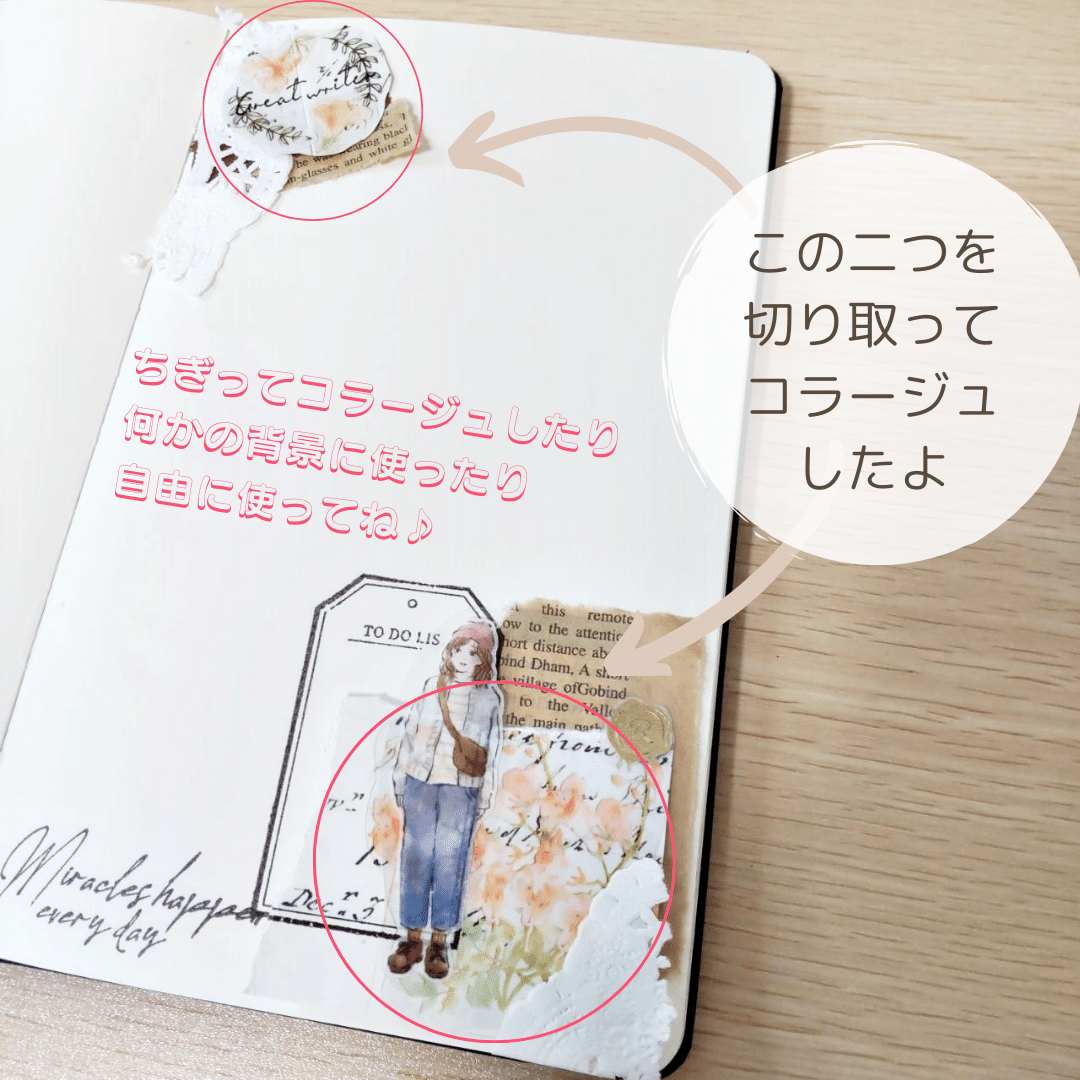 Great writer
he was wearing black
n-glasses and white gl
この二つを
切り取って
コラージュ
したよ
ちぎってコラージュしたり
何かの背景に使ったり
自由に使ってね♪
TO DO LIS
this remote
ow to the attentio
hort distance ab
bind Dham, A short
village ofGobind
to the Valley
the main path
from
Dec
Miracles happen
every day